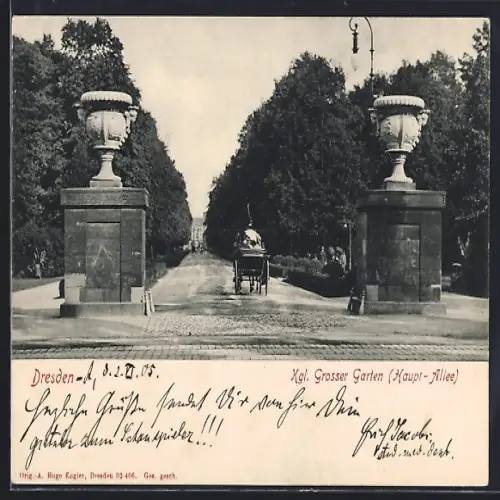 Dresden-A, d. 2. VI. 05.
Kgl. Grosser Garten (Haupt-Allee)
Herzliche Grüße sendet Dir von hier Dein
zum Schauspieler!!!
Erich Jacobi
stud. med. dent.
Orig.-A. Hugo Engler, Dresden 02 466. Ges. gesch.